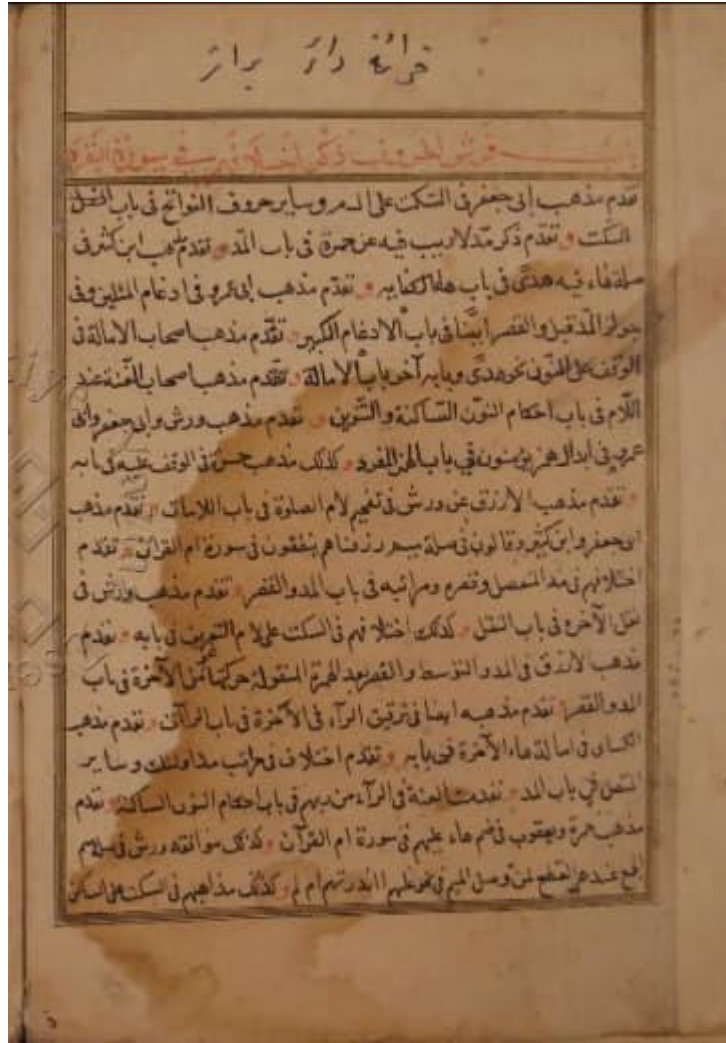 باب فرش الحروف ذكر اختلافهم في سورة البقرة
تقدم مذهب ابى جعفر فى السكت على الم وساير حروف الفواتح فى باب
السكت وتقدم ذكر مد لا ريب فيه عن حمزة فى باب المد وتقدم مذهب ابن كثير فى
صلة هاء فيه هدى فى باب هاء الكناية وتقدم مذهب ابى عمرو فى ادغام المثلين وفى
جواز المد قبل والقصر ايضا فى باب الادغام الكبير وتقدم مذهب اصحاب الامالة فى
الوقف على المنون نحو هدى وبابه آخر باب الامالة وتقدم مذهب اصحاب الغنة عند
اللام فى باب احكام النون الساكنة والتنوين وتقدم مذهب ورش وابى جعفر وابى
عمرو فى ابدال همز يؤمنون في باب الهمز المفرد وكذلك مذهب حمزة فى الوقف عليه فى بابه
وتقدم مذهب الازرق عن ورش فى تفخيم لام الصلوة فى باب اللامات وتقدم مذهب
ابى جعفر وابن كثير وقالون فى صلة ميم رزقناهم ينفقون فى سورة ام القرآن وتقدم
اختلافهم فى مد المنفصل وقصره ومراتبه فى باب المد والقصر وتقدم مذهب ورش فى
نقل الآخرة فى باب النقل وكذلك اختلافهم فى السكت على لام التعريف فى بابه وتقدم
مذهب الازرق فى المد والتوسط والقصر بعد الهمزة المنقولة حركتها من الآخرة فى باب
المد والقصر وتقدم مذهبه ايضا فى ترقيق الرآء فى الآخرة فى باب الرآت وتقدم مذهب
الكسائى فى امالة هاء الآخرة فى بابه وتقدم اختلاف فى مراتب مد اولئك وساير
المتصل في باب المد وتقدمت الغنة فى الرآء من ربهم فى باب احكام النون الساكنة وتقدم
مذهب حمزة ويعقوب فى ضم هاء عليهم فى سورة ام القرآن وكذلك موافقه ورش فى صلة ميم
الجمع عند همز القطع لمن وصل الميم فى نحو عليهم اانذرتهم ام لم وكذلك مذاهبهم فى السكت على الساكن